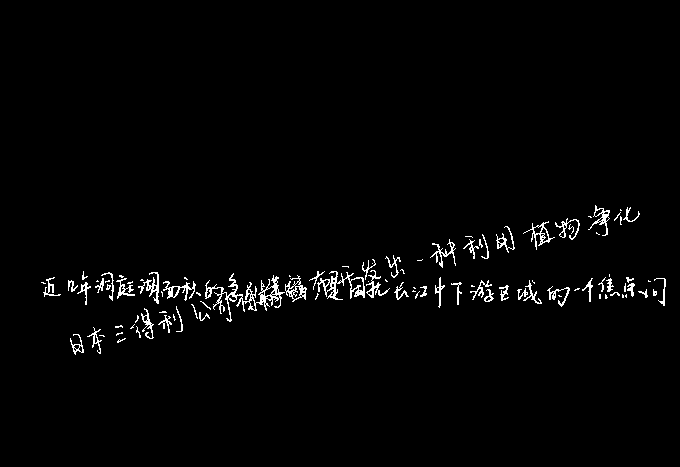 近年洞庭湖面积的急剧 长江中下游区域的一个焦点问
日本三得利公司 开发出一种利用植物净化